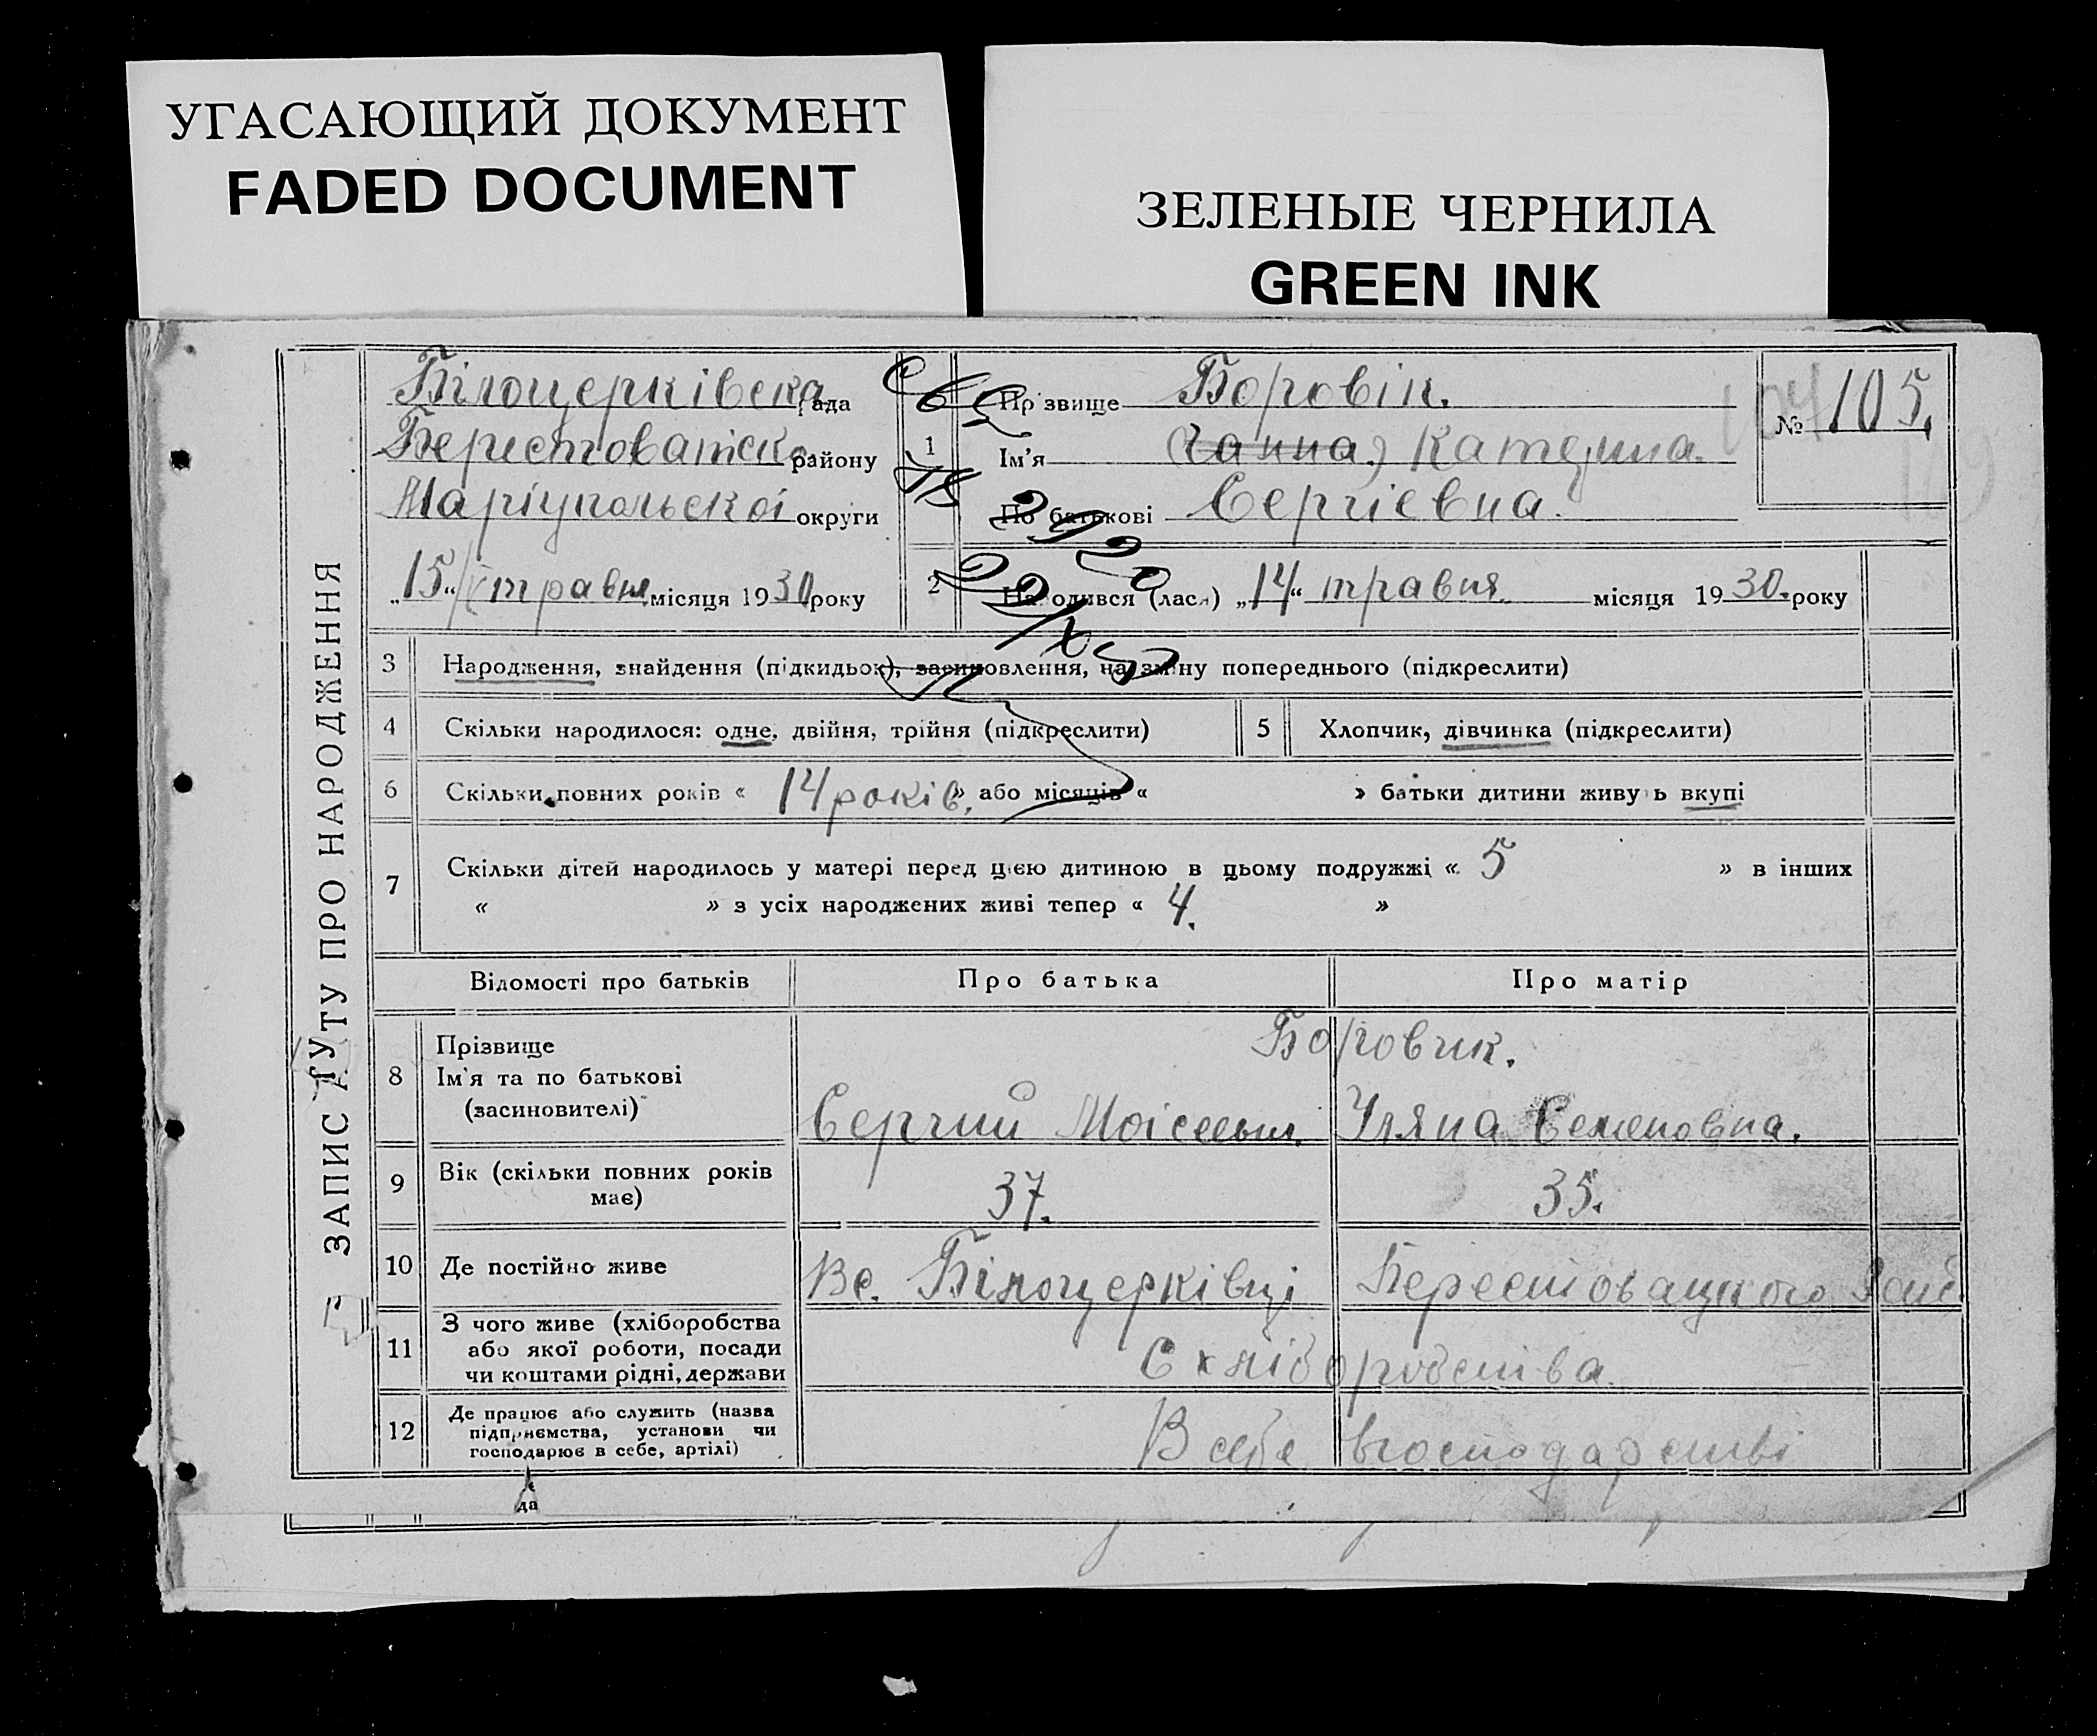 УГАСАЮЩИЙ ДОКУМЕНТ
FADED DOCUMENT
ЗЕЛЕНЫЕ ЧЕРНИЛА
GREEN INK
ЗАПИС АКТУ ПРО НАРОДЖЕННЯ
Білоцерківська рада
району
Маріупольскої округи
„15“/V травня місяця 1930 року
1
Прізвище Боровік.
Ім'я Катерина.
По батькові Сергіевна.
№ 105.
2 Народився (лася) „14“ травня місяця 1930. року
3 Народження, знайдення (підкидьок), засиновлення, на зміну попереднього (підкреслити)
4 Скільки народилося: одне, двійня, трійня (підкреслити)
5 Хлопчик, дівчинка (підкреслити)
6 Скільки повних років « 14 років. » або місяців « » батьки дитини живуть вкупі
7 Скільки дітей народилось у матері перед цією дитиною в цьому подружжі « 5 » в інших
« » з усіх народжених живі тепер « 4. »
Відомості про батьків
Про батька
Про матір
8 Прізвище
Ім'я та по батькові
(засиновителі)
Боровик.
Сергий
Уляна Семеновна.
9 Вік (скільки повних років
має)
37.
35.
10 Де постійно живе
Вс. Білоцерківці
11 З чого живе (хліборобства
або якої роботи, посади
чи коштами рідні, держави
С хліборобства.
12 Де працює або служить (назва
підприємства, установи чи
господарює в себе, артілі)
В себе в господарстві
да